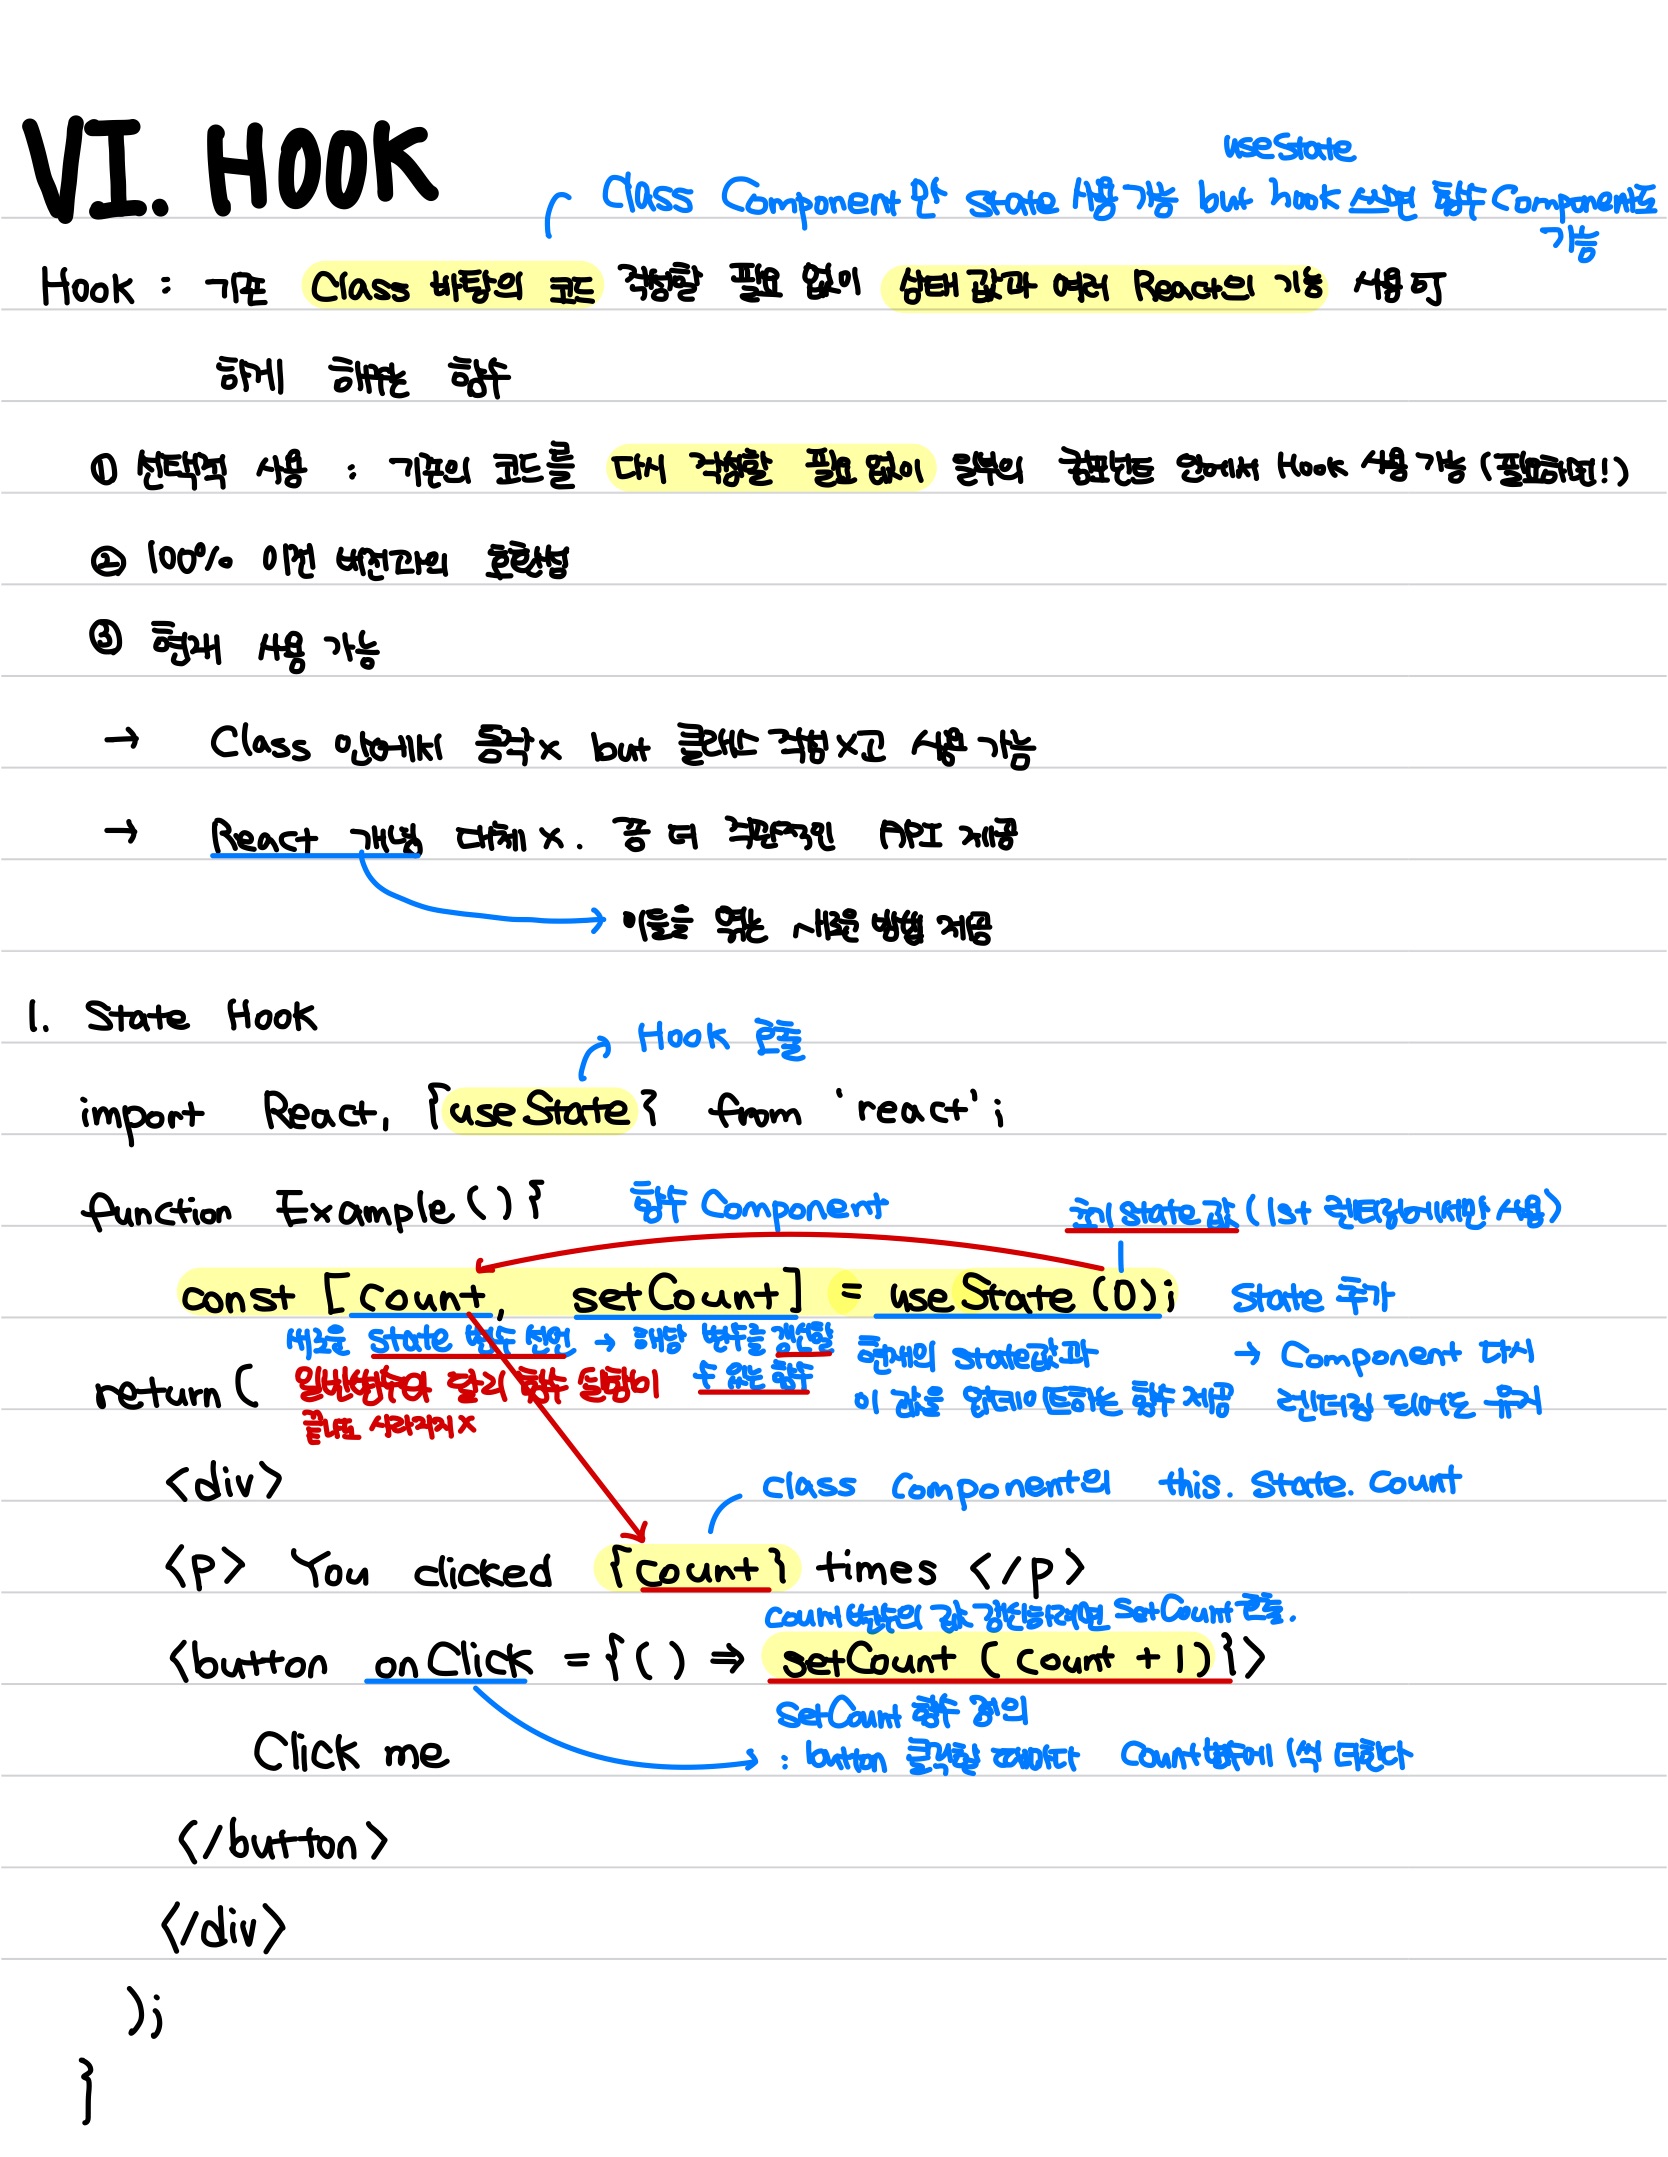 VI. HOOK
useState
Class Component만 State 사용 가능 but hook 쓰면 함수 Component도
가능
Hook : 기존 Class 바탕의 코드 작성할 필요 없이 상태 값과 여러 React의 기능 사용 可
하게 해주는 함수
① 선택적 사용 : 기존의 코드를 다시 작성할 필요 없이 일부의 컴포넌트 안에서 Hook 사용 가능 (필요하면!)
② 100% 이전 버전과의 호환성
③ 현재 사용 가능
→ Class 안에서 동작x but 클래스 작성x고 사용 가능
→ React 개념 대체 x. 좀 더 직관적인 API 제공
이들을 엮는 새로운 방법 제공
1. State Hook
Hook 호출
import React, {useState} from 'react';
function Example () { 함수 Component 초기 state 값 (1st 렌더링에서만 사용)
const [count, setCount] = useState (0); State 추가
새로운 state 변수 선언 → 해당 변수를 갱신할 현재의 state값과 → Component 다시
return ( 일반변수와 달리 함수 실행이 수 있는 함수 이 값을 업데이트하는 함수 제공 렌더링 되어도 유지
끝나도 사라지지 x
<div>
class Component의 this. State. Count
<p> You clicked {count} times </p>
count변수의 값 갱신하려면 setCount 호출.
<button onClick = {() ⇒ setCount (count + 1)}>
SetCount 함수 정의
Click me : button 클릭할 때마다 Count변수에 1씩 더한다
</button>
</div>
);
}